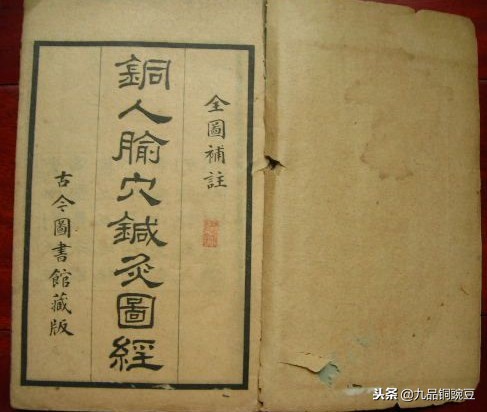 全圖補註
銅人腧穴鍼灸圖經
古今圖書館藏版
头条 @九品铜豌豆